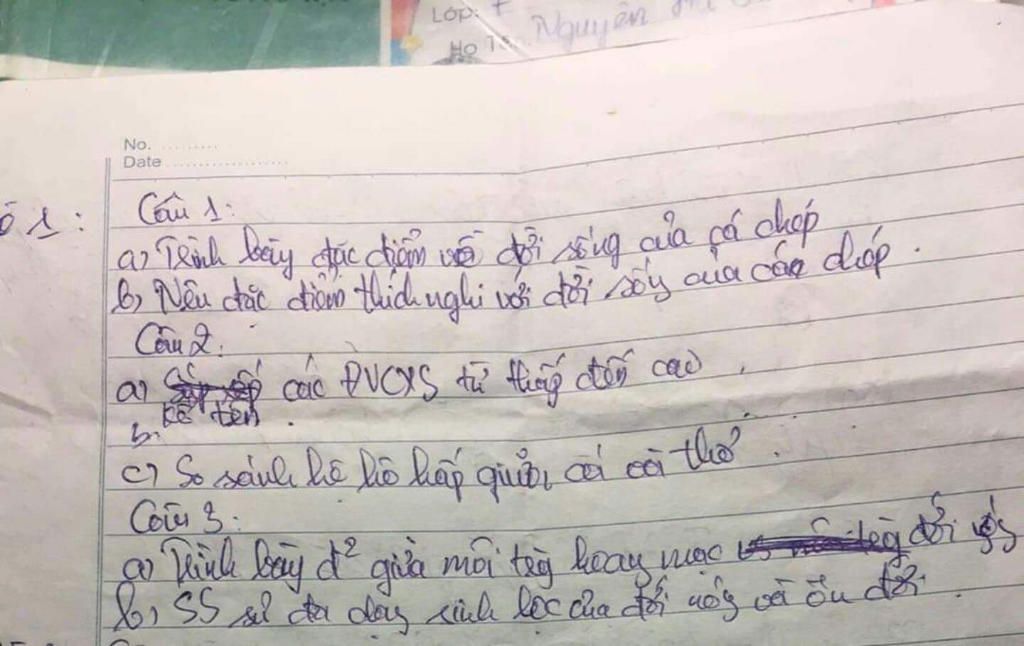 Lớp: 7
Họ Tên Nguyễn
No.
Date
ố 1:
Câu 1:
a) Trình bày đặc điểm về đời sống của cá chép
b) Nêu đặc điểm thích nghi với đời sống của cá chép.
Câu 2:
a) các ĐVCXS từ thấp đến cao.
kể tên
b.
c) So sánh hệ hô hấp giữa cá và thỏ.
Câu 3:
a) Trình bày đ² giữa môi trg hoag mạc đới
b) SS sự đa dạng sinh học của đới nóng và ôn đới.